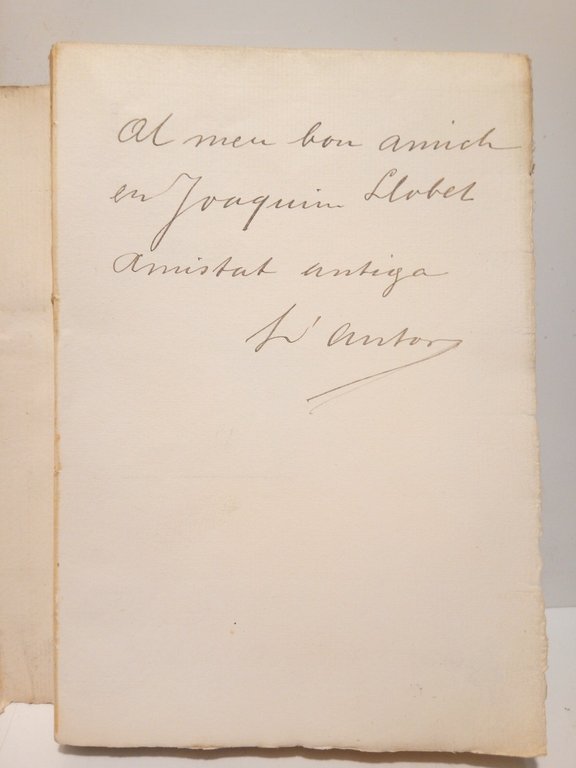 Al meu bon amich
en Joaquim Llobet
Amistat antiga
L'autor